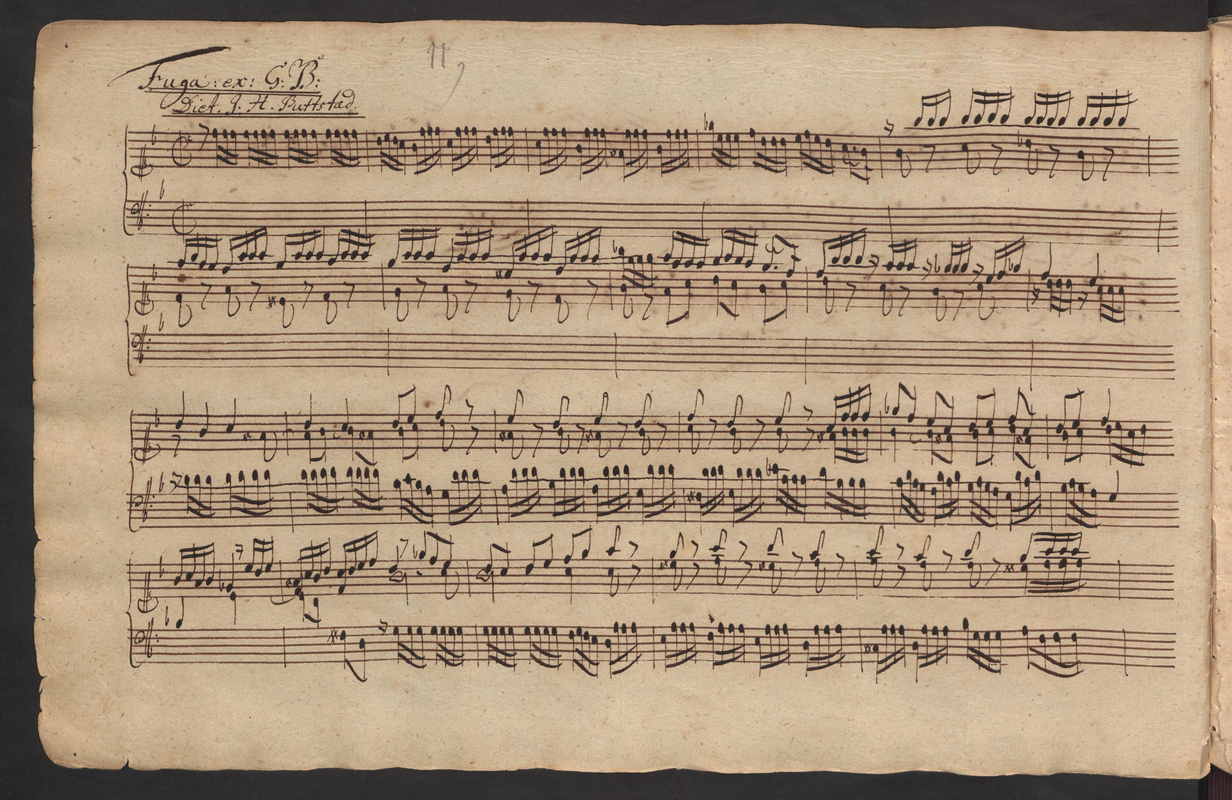 11,
Fuga: ex: G: B:
Dict. J. H. Buttstad.